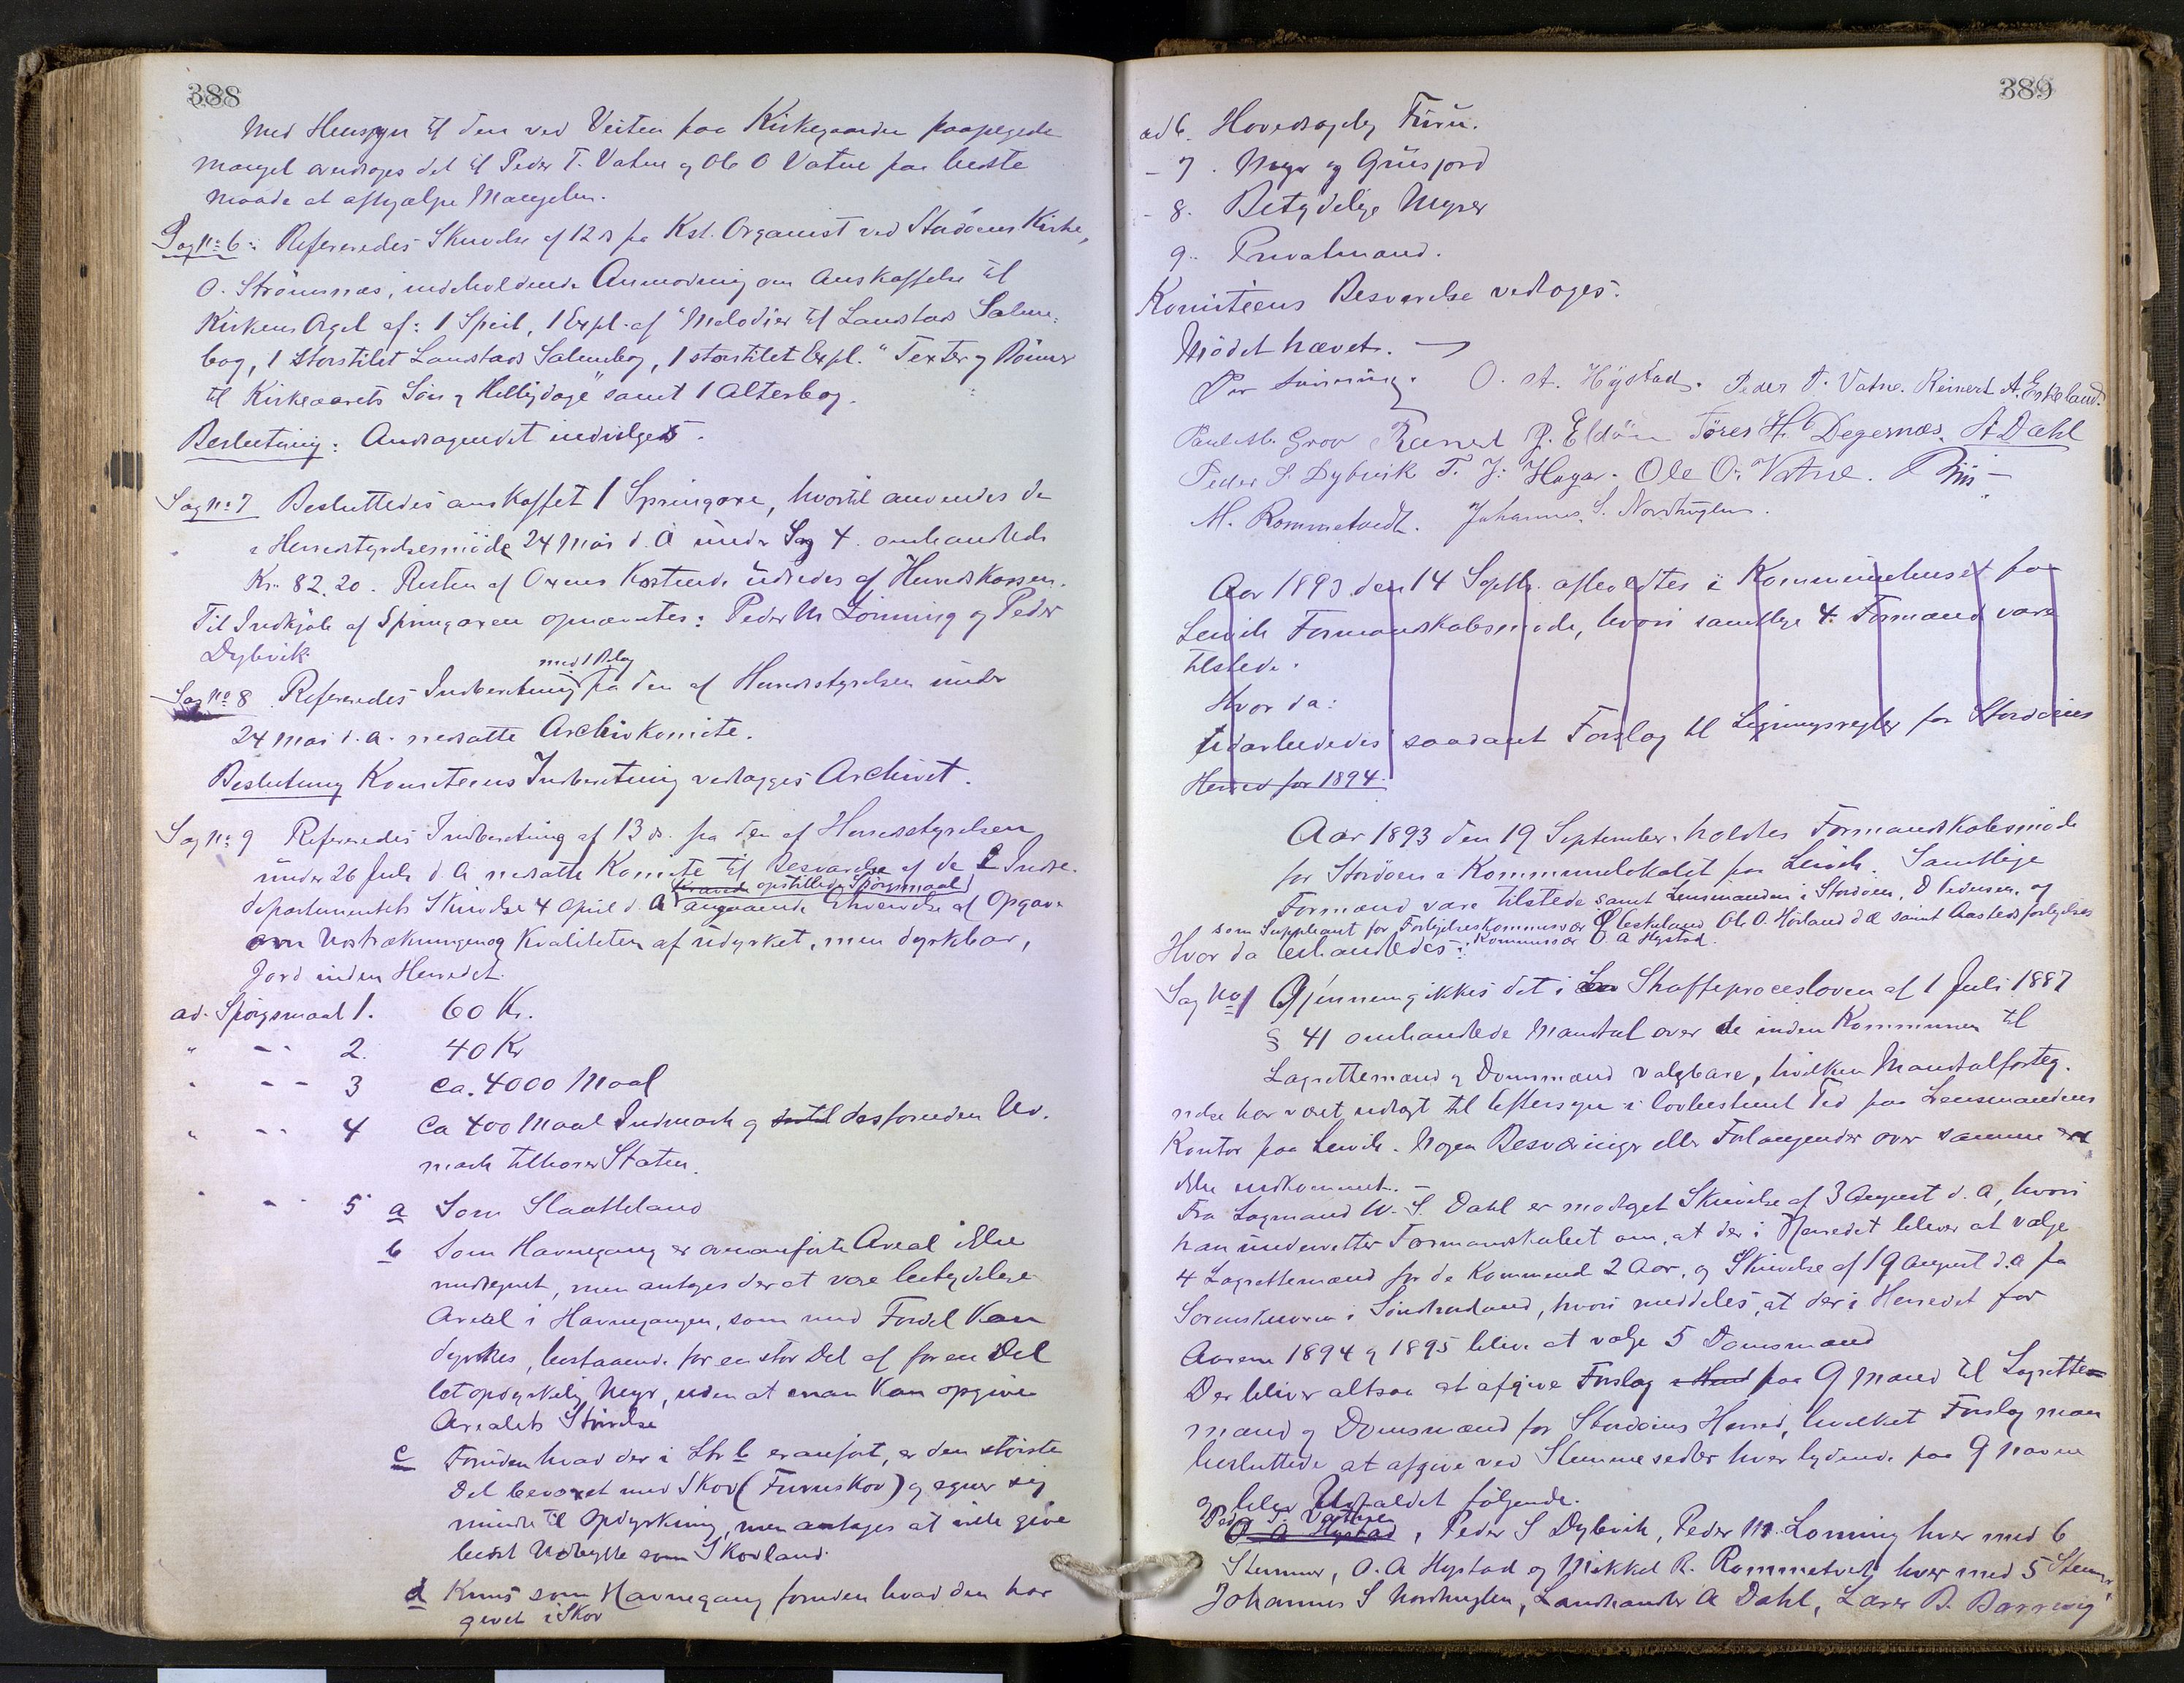 388
Med Hensyn til den ved Veiten paa Kirkegaarden paapegede
mangel overdroges det til Peder T. Vatne og Ole O Vatne paa bedste
maade at afhjælpe Mangelen.
Sag No 6: Refereredes Skrivelse af 12 ds fra Kst. Organist ved Stordøens Kirke,
O. Strömsnæs, indeholdende Anmodning om Anskaffelse til
Kirkens Orgel af: 1 Speil, 1 Expl. af "Melodier til Landstads Salme-
bog, 1 storstilet Landstads Salmebog, 1 storstilet Expl. "Texter og Bönner
til Kirkeaarets Søn og Helligdage" samt 1 Alterbog.
Beslutning: Andragendet indvilges.
Sag No 7 Besluttedes anskaffet 1 Springoxe, hvortil anvendes de
i Herredstyrelsesmöde 24 Mai d. A under Sag 4. omhandlede
Kr. 82,20. Resten af Oxens Kostende udredes af Herredskassen.
Til Indkjöb af Springoxen opnævntes: Peder M Lönning og Peder
Dybvik
med 1 Bilag
Sag No 8 Refereredes Indberetning fra den af Herredsstyrelsen under
24 Mai d. a. nedsatte Archivkomite.
Beslutning Komiteens Indberetning vedlægges Archivet.
Sag No 9 Refereredes Indberetning af 13 ds. fra den af Herredsstyrelsen
under 26 Juli d. A nedsatte Komite til Besvarelse af de i Indre-
opstillede Spørgsmaal
departementets Skrivelse 4 April d. A angaaende Erhvervelse af Opgave
om Udstrækningen og Kvaliteten af udyrket, men dyrkbar,
Jord inden Herredet.
ad. Spörgsmaal 1. 60 Kr.
" - - 2. 40 Kr
" - - 3 ca. 4000 Maal
" - - 4 Ca 400 Maal Indmark og desforuden Ud-
mark tilhører Staten.
" - 5 a Som Slaatteland
b Som Havnegang er ovenanførte Areal ikke
medregnet, men antages der at være betydelige
Areal i Havnegangen, som med Fordel kan
dyrkes, bestaaende for en stor Del af for en Del
let opdyrkelig Myr, uden at man kan opgive
Arealets Störrelse
c Foruden hvad der i Litr b er anført, er den störste
Del bevoxet med Skov (Furuskov) og egner sig
mindre til Opdyrkning, men antages at ville give
bedst Udbytte som Skovland.
d Kuns som Havnegang foruden hvad den har
givet i Skov
389
ad 6. Hovedsagelig Furu.
- 7. Myr og Grusjord
- 8. Betydelige Myrer
9. Privatmand.
Komiteens Besvarelse vedtoges.
Mödet hævet.
O. A. Hystad. Peder T. Vatne. Reinert A. Eskeland.
Paul M. Grov Reinert P. Eldöen Töres H. Degernæs. A Dahl
Peder S. Dybvik T. J. Hagar. Ole O. Vatne.
M. Rommetvedt. Johannes S. Nordhuglen.
Aar 1893 den 14 Septbr. afholdtes i Kommunehuset paa
Lervik Formandskabsmøde, hvori samtlige 4 Formænd vare
tilstede.
Hvor da:
Udarbeidedes saadant Forslag til Ligningsregler for Stordöens
Herred for 1894.
Aar 1893 den 19 September. holdtes Formandskabsmöde
for Stordöen i Kommunelokalet paa Lervik. Samtlige
Formænd vare tilstede samt Lensmanden i Stordöen, O Pedersen, og
som Suppleant for Forligelseskommissær Ole O. Hörland dæ samt Aastedsforlegelses
Hvor da behandledes: Kommissær O. A Hystad.
Sag No 1 Gjennemgikkes det i Straffeprocesloven af 1 Juli 1887
§ 41 omhandlede Mandtal over de inden Kommunen til
Lagrettemænd og Domsmænd valgbare, hvilken Mandtalforteg-
nelse har været udlagt til Eftersyn i lovbestemt Tid paa Lensmandens
Kontor paa Lervik. Nogen Besværinger eller Forlangender over samme er
ikke indkommet. -
Fra Lagmand W. S. Dahl er modtaget Skrivelse af 3 August d. a, hvori
han underretter Formandskabet om, at der i Herredet bliver at vælge
4 Lagrettemænd for de kommend 2 Aar, og Skrivelse af 19 August d. a fra
Sorenskriveren i Söndhordland, hvori meddeles, at der i Herredet for
Aarene 1894 og 1895 bliver at vælge 5 Domsmænd
Der bliver altsaa at afgive Forslag paa 9 Mænd til Lagrette-
mænd og Domsmænd for Stordöens Herred, hvilket Forslag man
besluttede at afgive ved Stemmesedler hver lydende paa 9 Navne
og blev Udfaldet følgende.
Peder T. Vathne
O A Hystad, Peder S Dybvik, Peder M. Lönning hver med 6
Stemmer, O. A Hystad og Mikkel R. Rommetvedt hver med 5 Stemmer
Johannes S Nordhuglen, Landhandler A Dahl, Lærer B. Børrevig